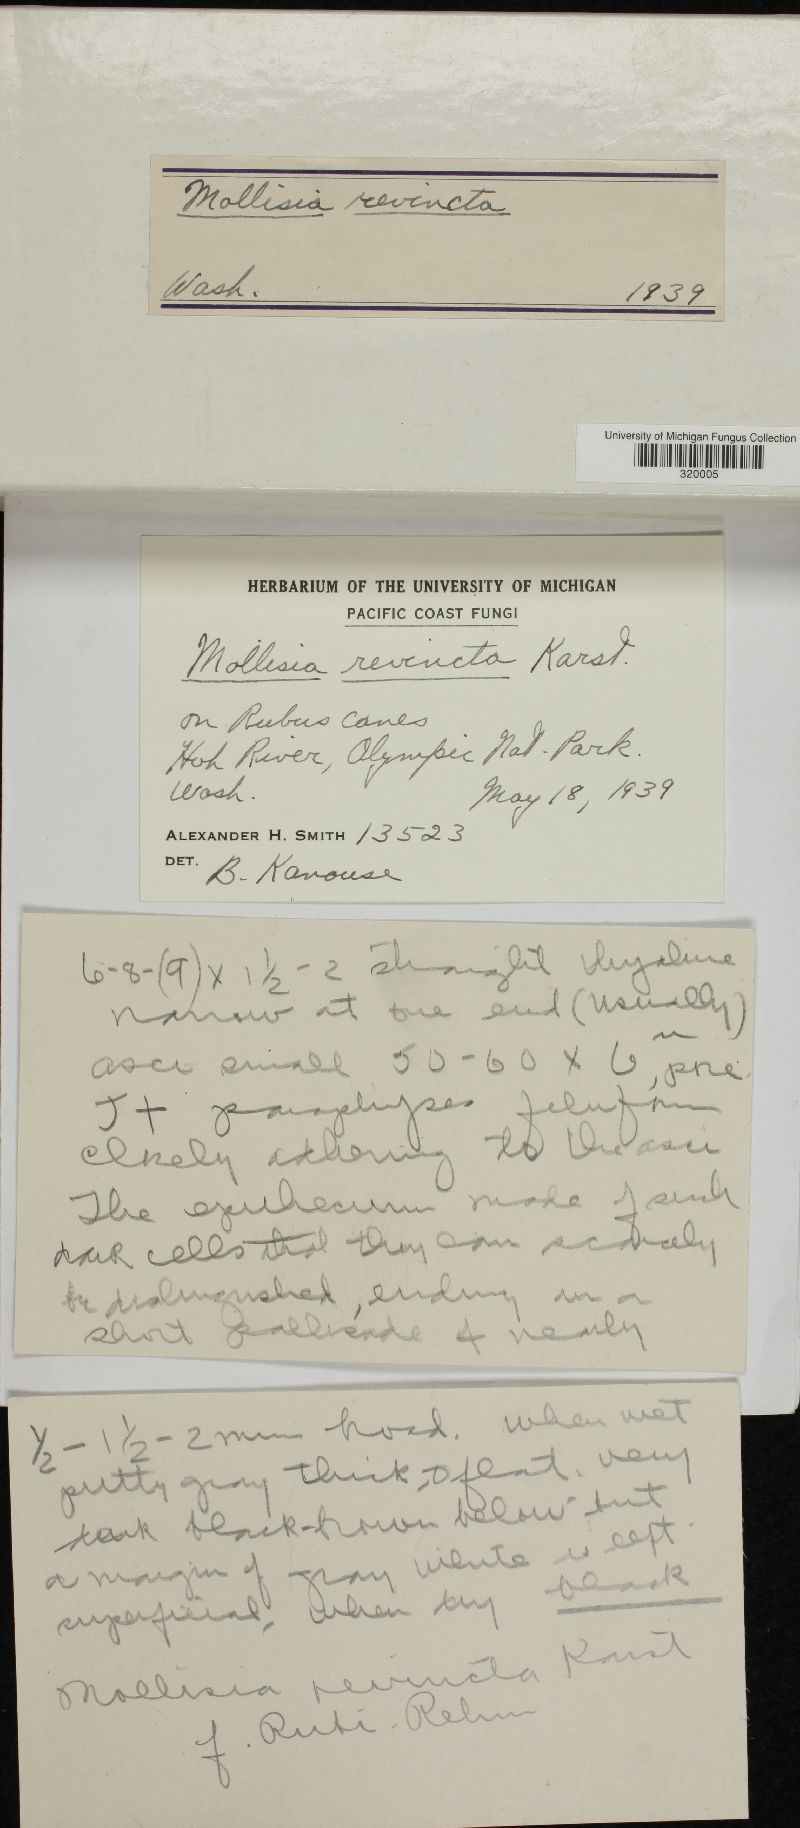 Mollisia revincta
Wash. 1939
University of Michigan Fungus Collection
320005
HERBARIUM OF THE UNIVERSITY OF MICHIGAN
PACIFIC COAST FUNGI
Mollisia revincta Karst.
on Rubus canes
Hoh River, Olympic Nat. Park.
Wash. May 18, 1939
ALEXANDER H. SMITH 13523
DET. B. Kanouse
6-8-(9) x 1 1/2 - 2 straight hyaline
narrow at one end (usually)
asci small 50-60 x 6
J+ paraphyses filiform
closely adhering to the asci
The epithecium made of such
dark cells that they can scarcely
be distinguished, ending in a
short pallisade & nearly
1/2 - 1 1/2 - 2 mm broad. when wet
putty gray thick, flat. very
dark black-brown below but
a margin of gray white is left.
superficial, when dry black
Mollisia revincta Karst
f. Rubi Rehm